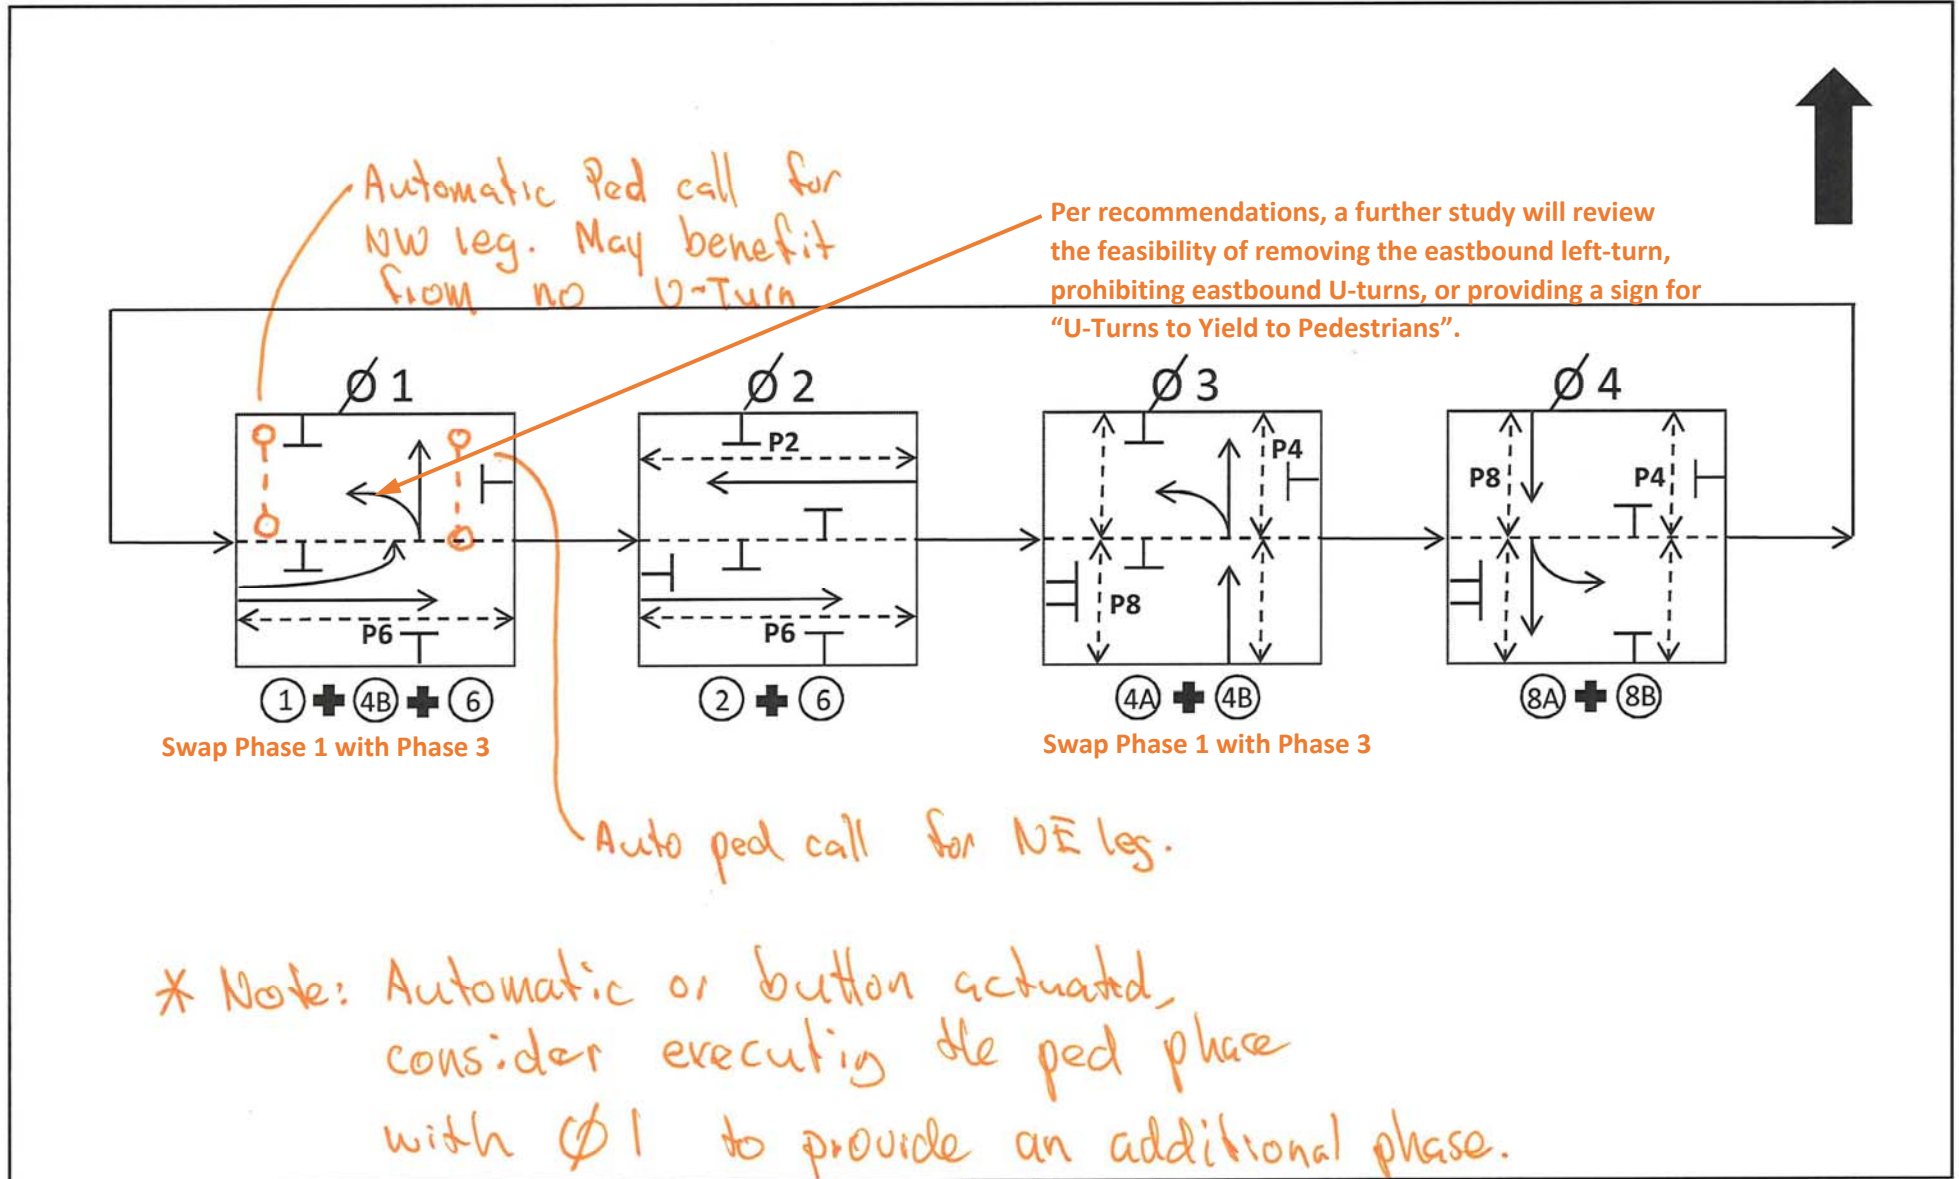 Automatic Ped call for
NW leg. May benefit
from no U-Turn
Per recommendations, a further study will review
the feasibility of removing the eastbound left-turn,
prohibiting eastbound U-turns, or providing a sign for
“U-Turns to Yield to Pedestrians”.
Ø 1
Ø 2
Ø 3
Ø 4
P6
P2
P6
P4
P8
P8
P4
1 + 4B + 6
2 + 6
4A + 4B
8A + 8B
Swap Phase 1 with Phase 3
Swap Phase 1 with Phase 3
Auto ped call for NE leg.
* Note: Automatic or button actuated,
consider executig the ped phace
with Ø 1 to provide an additional phase.